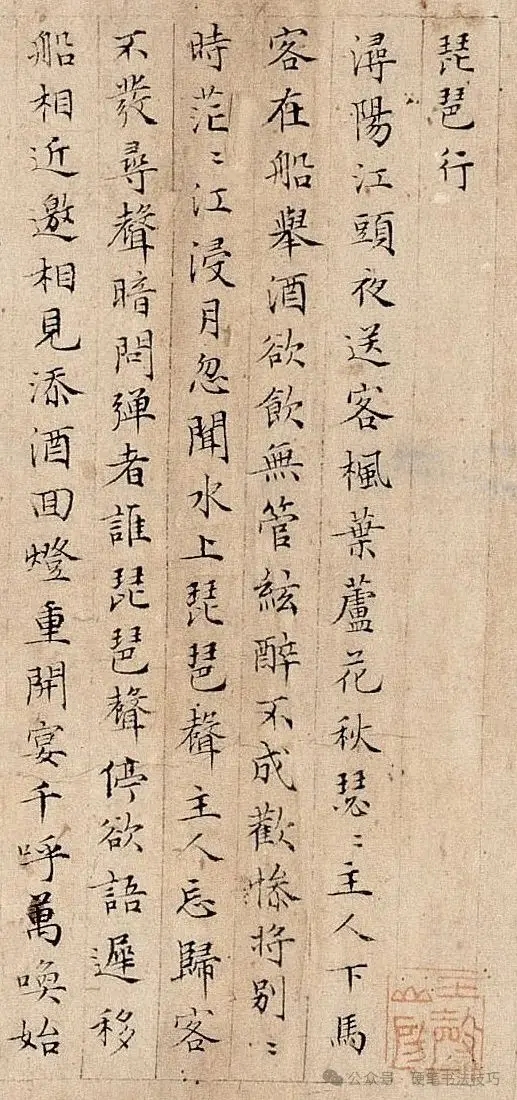 琵琶行
潯陽江頭夜送客楓葉蘆花秋瑟〻主人下馬
客在船舉酒欲飲無管絃醉不成歡慘將别〻
時茫〻江浸月忽聞水上琵琶聲主人忘歸客
不發尋聲暗問彈者誰琵琶聲停欲語遲移
船相近邀相見添酒回燈重開宴千呼萬喚始
公众号 · 硬笔书法技巧